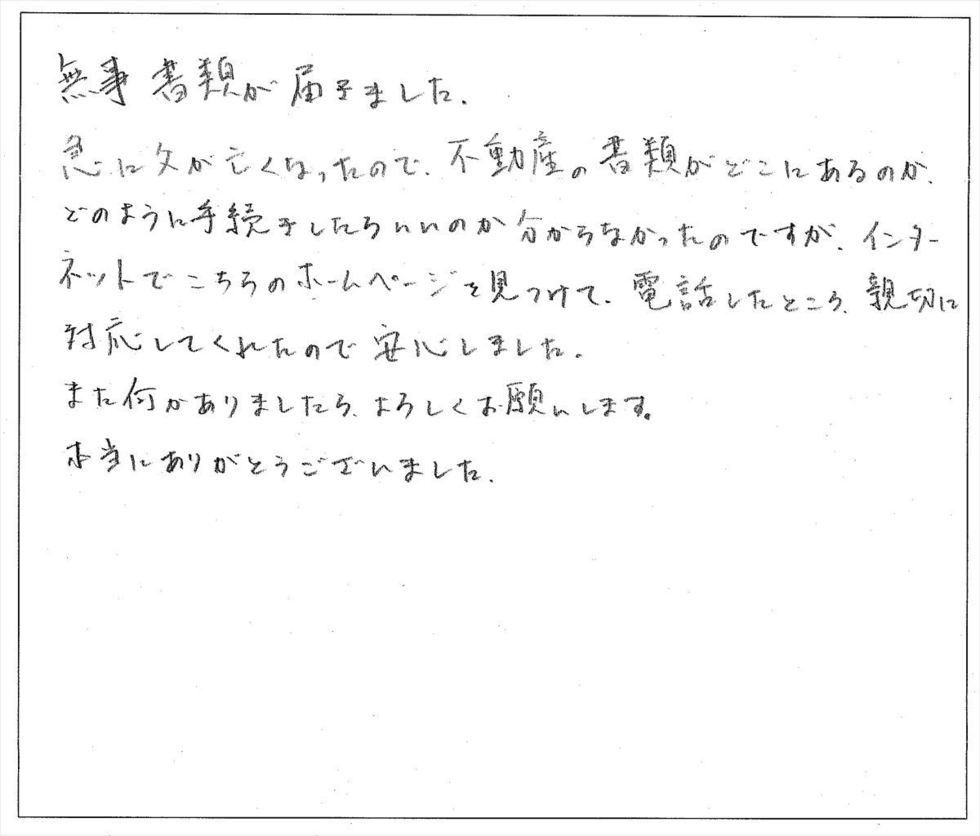 無事書類が届きました。
急に父が亡くなったので、不動産の書類がどこにあるのか、
どのように手続きしたらいいのか分からなかったのですが、インター
ネットでこちらのホームページを見つけて、電話したところ、親切に
対応してくれたので安心しました。
また何かありましたら、よろしくお願いします。
本当にありがとうございました。